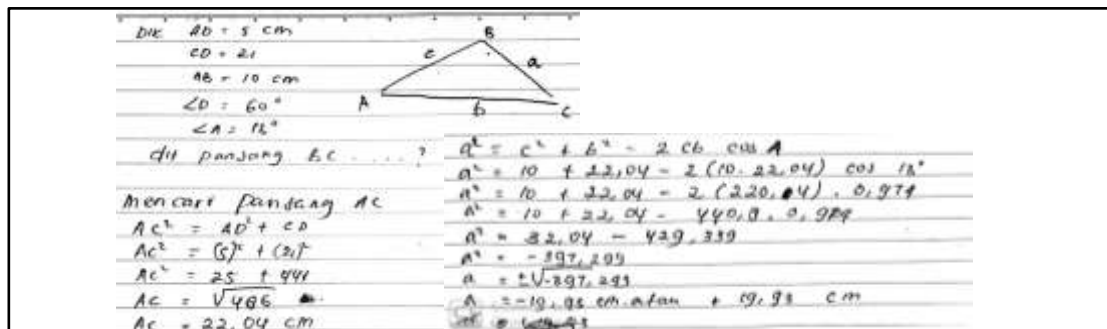 Dik AD = 5 cm
CD = 21
AB = 10 cm
∠D = 60°
∠A = 13°
dit panjang BC ....?
B
c
a
A
b
C
Mencari Panjang AC
AC² = AD² + CD
AC² = (5)² + (21)²
AC² = 25 + 441
AC = √466
AC = 22,04 cm
a² = c² + b² - 2 cb cos A
a² = 10 + 22,04 - 2 (10. 22,04) cos 13°
a² = 10 + 22,04 - 2 (220,4) . 0,974
a² = 10 + 22,04 - 440,8 . 0,974
a² = 32,04 - 429,339
a² = -397,299
a = ±√-397,299
a = -19,93 cm atau + 19,93 cm